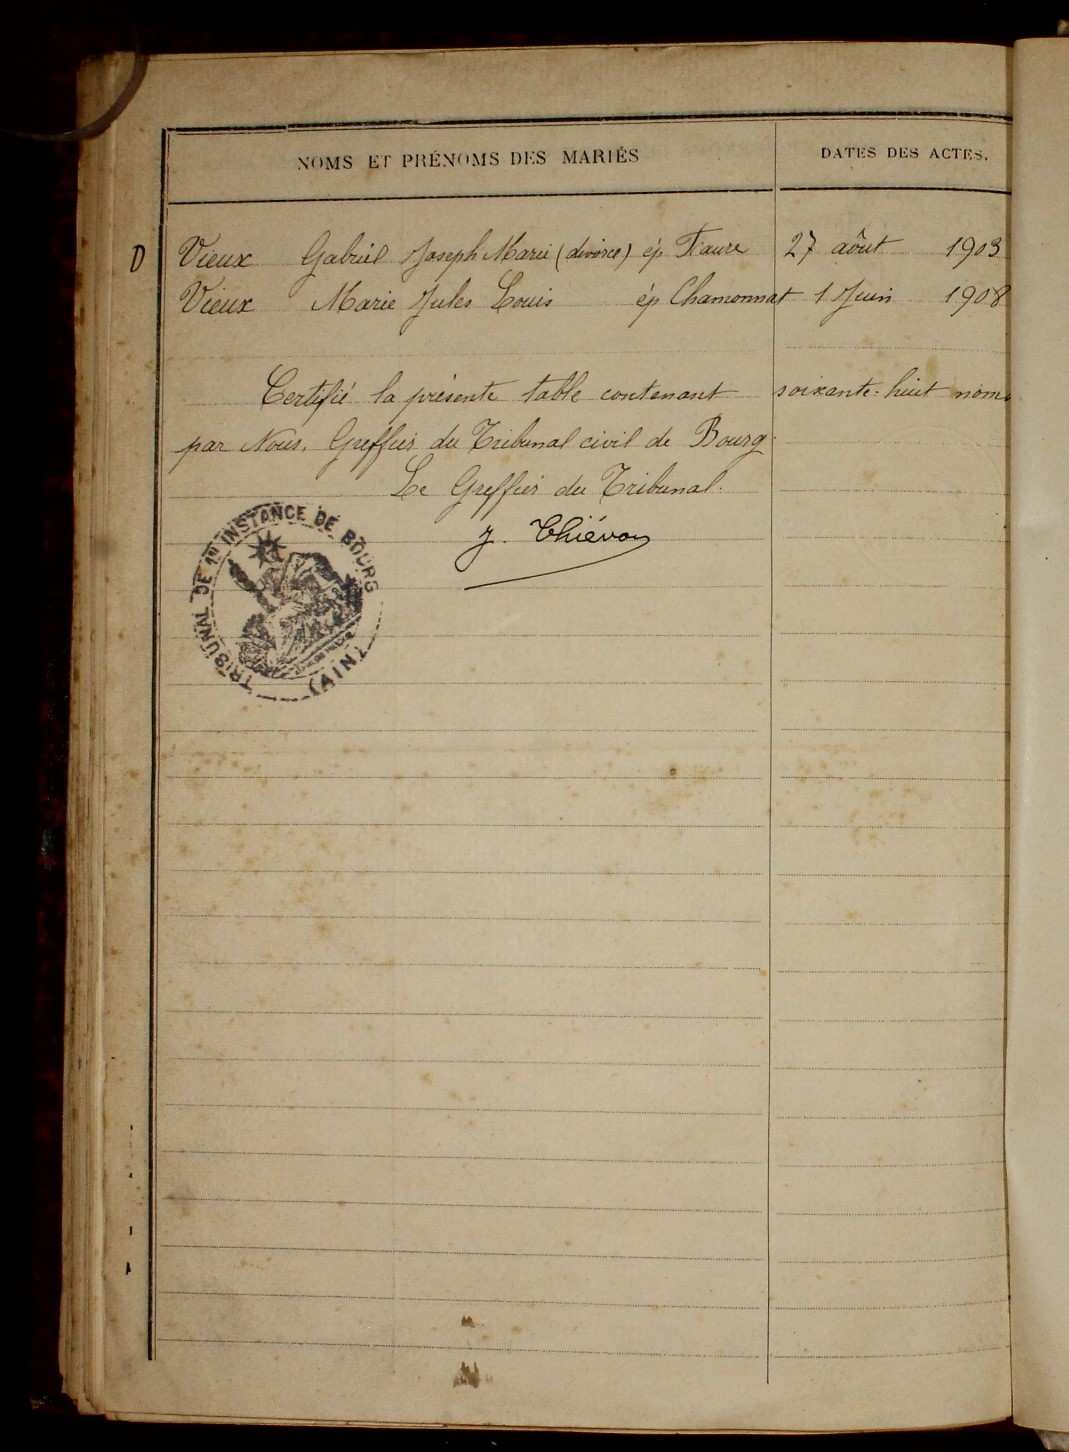 NOMS ET PRÉNOMS DES MARIÉS DATES DES ACTES.
D Vieux Gabriel Joseph Marie (divorce) ép Faure 27 août 1903
Vieux Marie Jules Louis ép Chamonnat 1 Juin 1908
Certifié la présente table contenant soixante-huit noms
par Nous, Greffier du Tribunal civil de Bourg.
Le Greffier du Tribunal.
J. Thiévon
TRIBUNAL DE 1RE INSTANCE DE BOURG
(AIN)